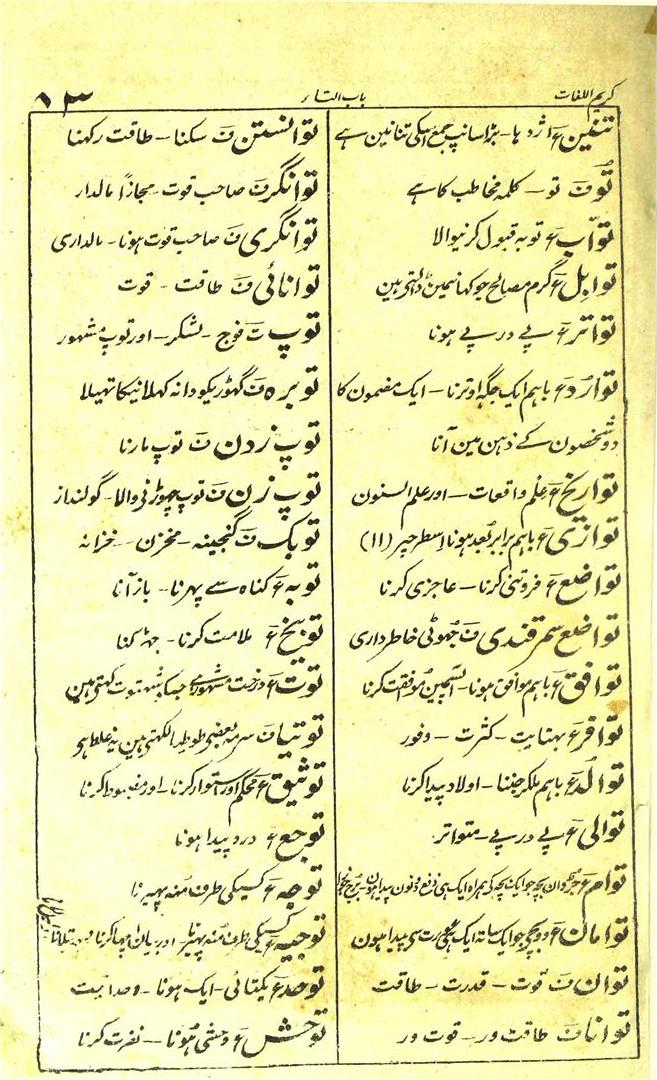 کریم اللغات
باب التاء
۵۳
تنین ع اژدہا۔ بڑا سانپ جمع اسکی تنانین ہے
تو ف تو۔ کلمہ مخاطب کا ہے
توّاب ع توبہ قبول کرنیوالا
توابل ع گرم مصالح جو کھانیمین ڈالتے ہین
تواتر ع پے درپے ہونا
توارُد ع باہم ایک جگہ اوترنا۔ ایک مضمون کا
دو شخصون کے ذہن مین آنا
تواریخ ع علم واقعات۔ اور علم السنون
توازی ع باہم برابر بُعد ہونا اسطرحپر (۱۱)
تواضع ع فروتنی کرنا۔ عاجزی کرنا
تواضع سمرقندی ف جھوٹی خاطرداری
توافق ع باہم موافق ہونا۔ آپسمین موافقت کرنا
توافر ع بہتایت۔ کثرت۔ وفور
توالُد ع باہم ملکر جننا۔ اولاد پیدا کرنا
توالی ع پے درپے۔ متواتر
توام ع جڑوان بچہ جو ایک بچہ کے ہمراہ ایک ہی دفع دونون پیدا ہون۔
توامان ع دو بچے جو ایک ساتھ ایک ہی عورت سے پیدا ہون
توان ف قوت۔ قدرت۔ طاقت
توانا ف طاقت ور۔ قوت ور
توانستن ف سکنا۔ طاقت رکھنا
توانگر ف صاحب قوت۔ مجازاً مالدار
توانگری ف صاحب قوت ہونا۔ مالداری
توانائی ف طاقت۔ قوت
توپ ت فوج۔ لشکر۔ اور توپ مشہور
توبرہ ف گھوڑیکو دانہ کھلانیکا تھیلا
توپ زدن ف توپ مارنا
توپ زن ف توپ چھوڑنے والا۔ گولنداز
توبک ف گنجینہ۔ مخزن۔ خزانہ
توبہ ع گناہ سے پھرنا۔ باز آنا
توبیخ ع ملامت کرنا۔ جھڑکنا
توت ع درخت مشہور ہے جسکو شہتوت کہتے ہین
توتیا ف سرمہ بعضے طوطیا لکھتے ہین یہ غلط ہے
توثیق ع محکم اور استوار کرنا۔ اور مضبوط کرنا
توجع ع درد پیدا ہونا
توجہ ع کسیکی طرف منہ پھیرنا
توجیہ ع کسیکی طرف منہ پھیرنا۔ اور بیان اچھا کرنا
توحد ع یکتائی۔ ایک ہونا۔ وحدانیت
توحش ع وحشی ہونا۔ نفرت کرنا